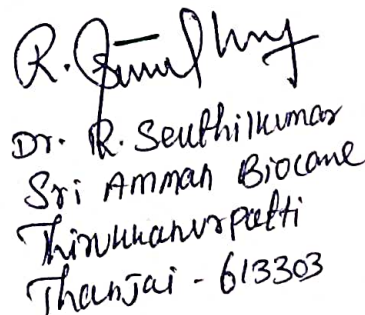 R.
Dr. R. Senthilkumar
Sri Amman Biocare
Thirukkanurpatti
Thanjai - 613303